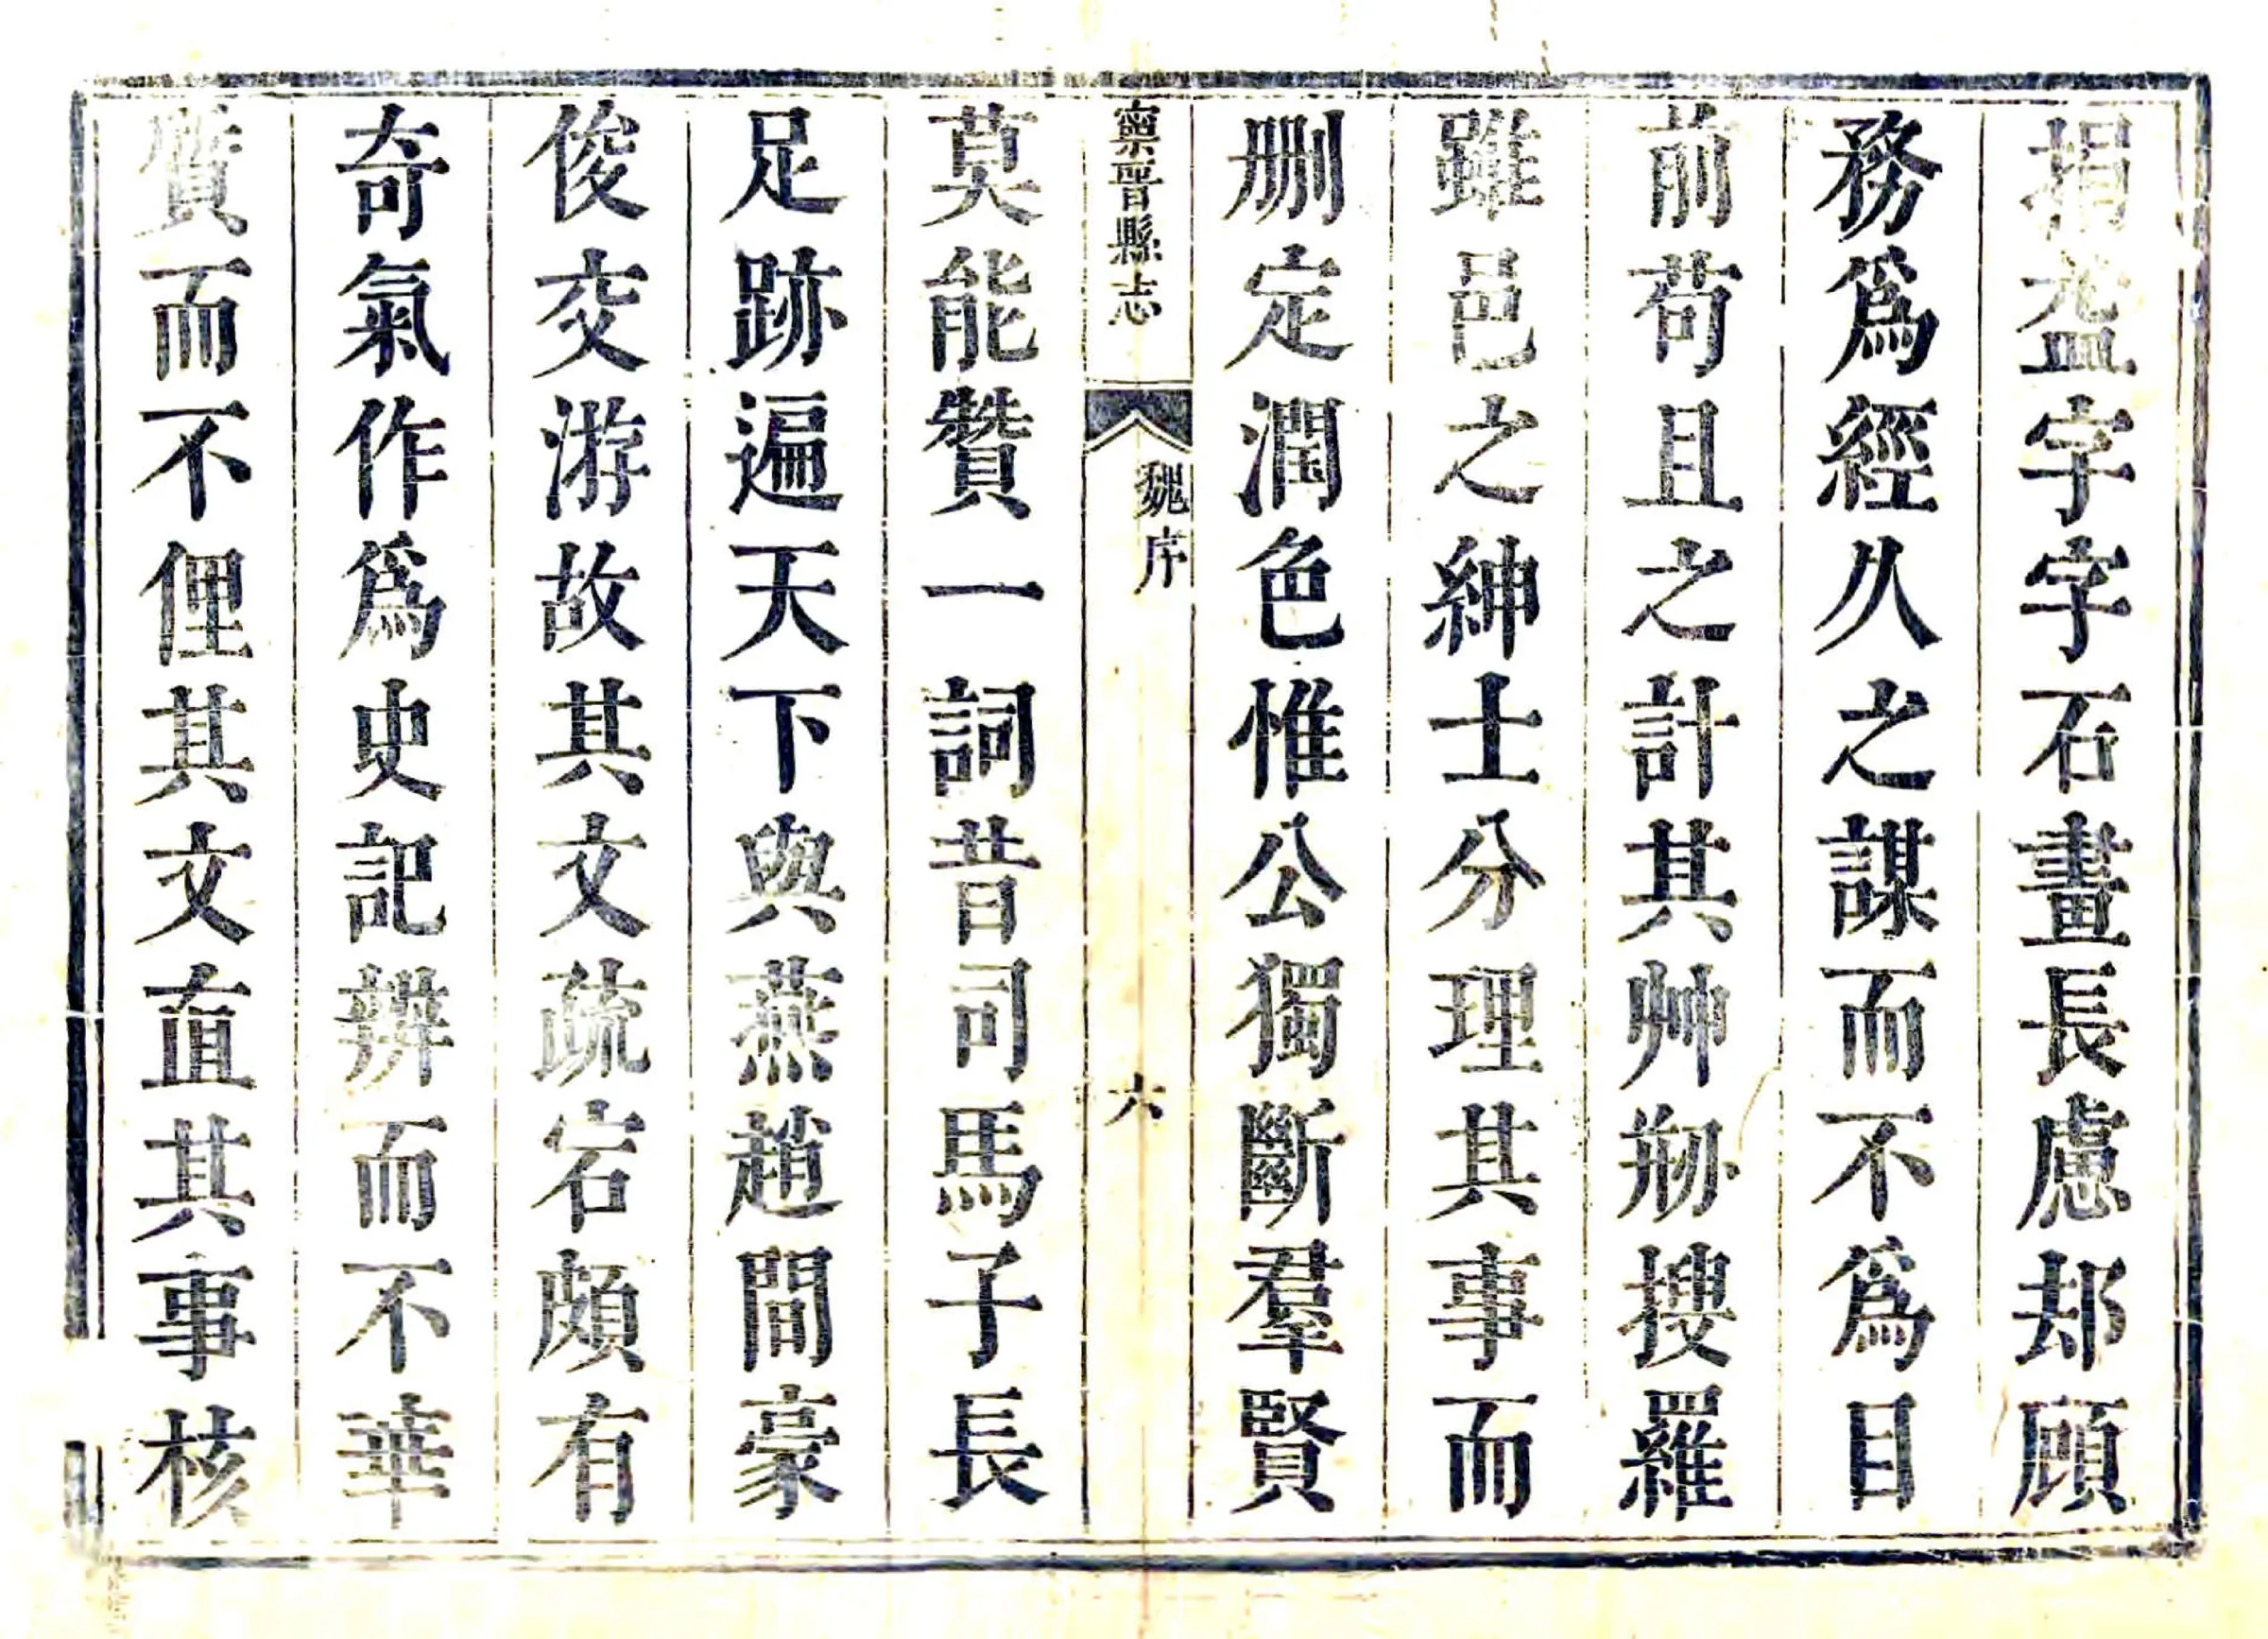 捐盔字字石畫長慮却顧
務爲經久之謀而不爲目
前苟且之計其艸剏搜羅
雖邑之紳士分理其事而
刪定潤色惟公獨斷羣賢
寧晉縣志
魏序
六
莫能贊一詞昔司馬子長
足跡遍天下與燕趙間豪
俊交游故其文疏宕頗有
奇氣作爲史記辨而不華
質而不俚其文直其事核